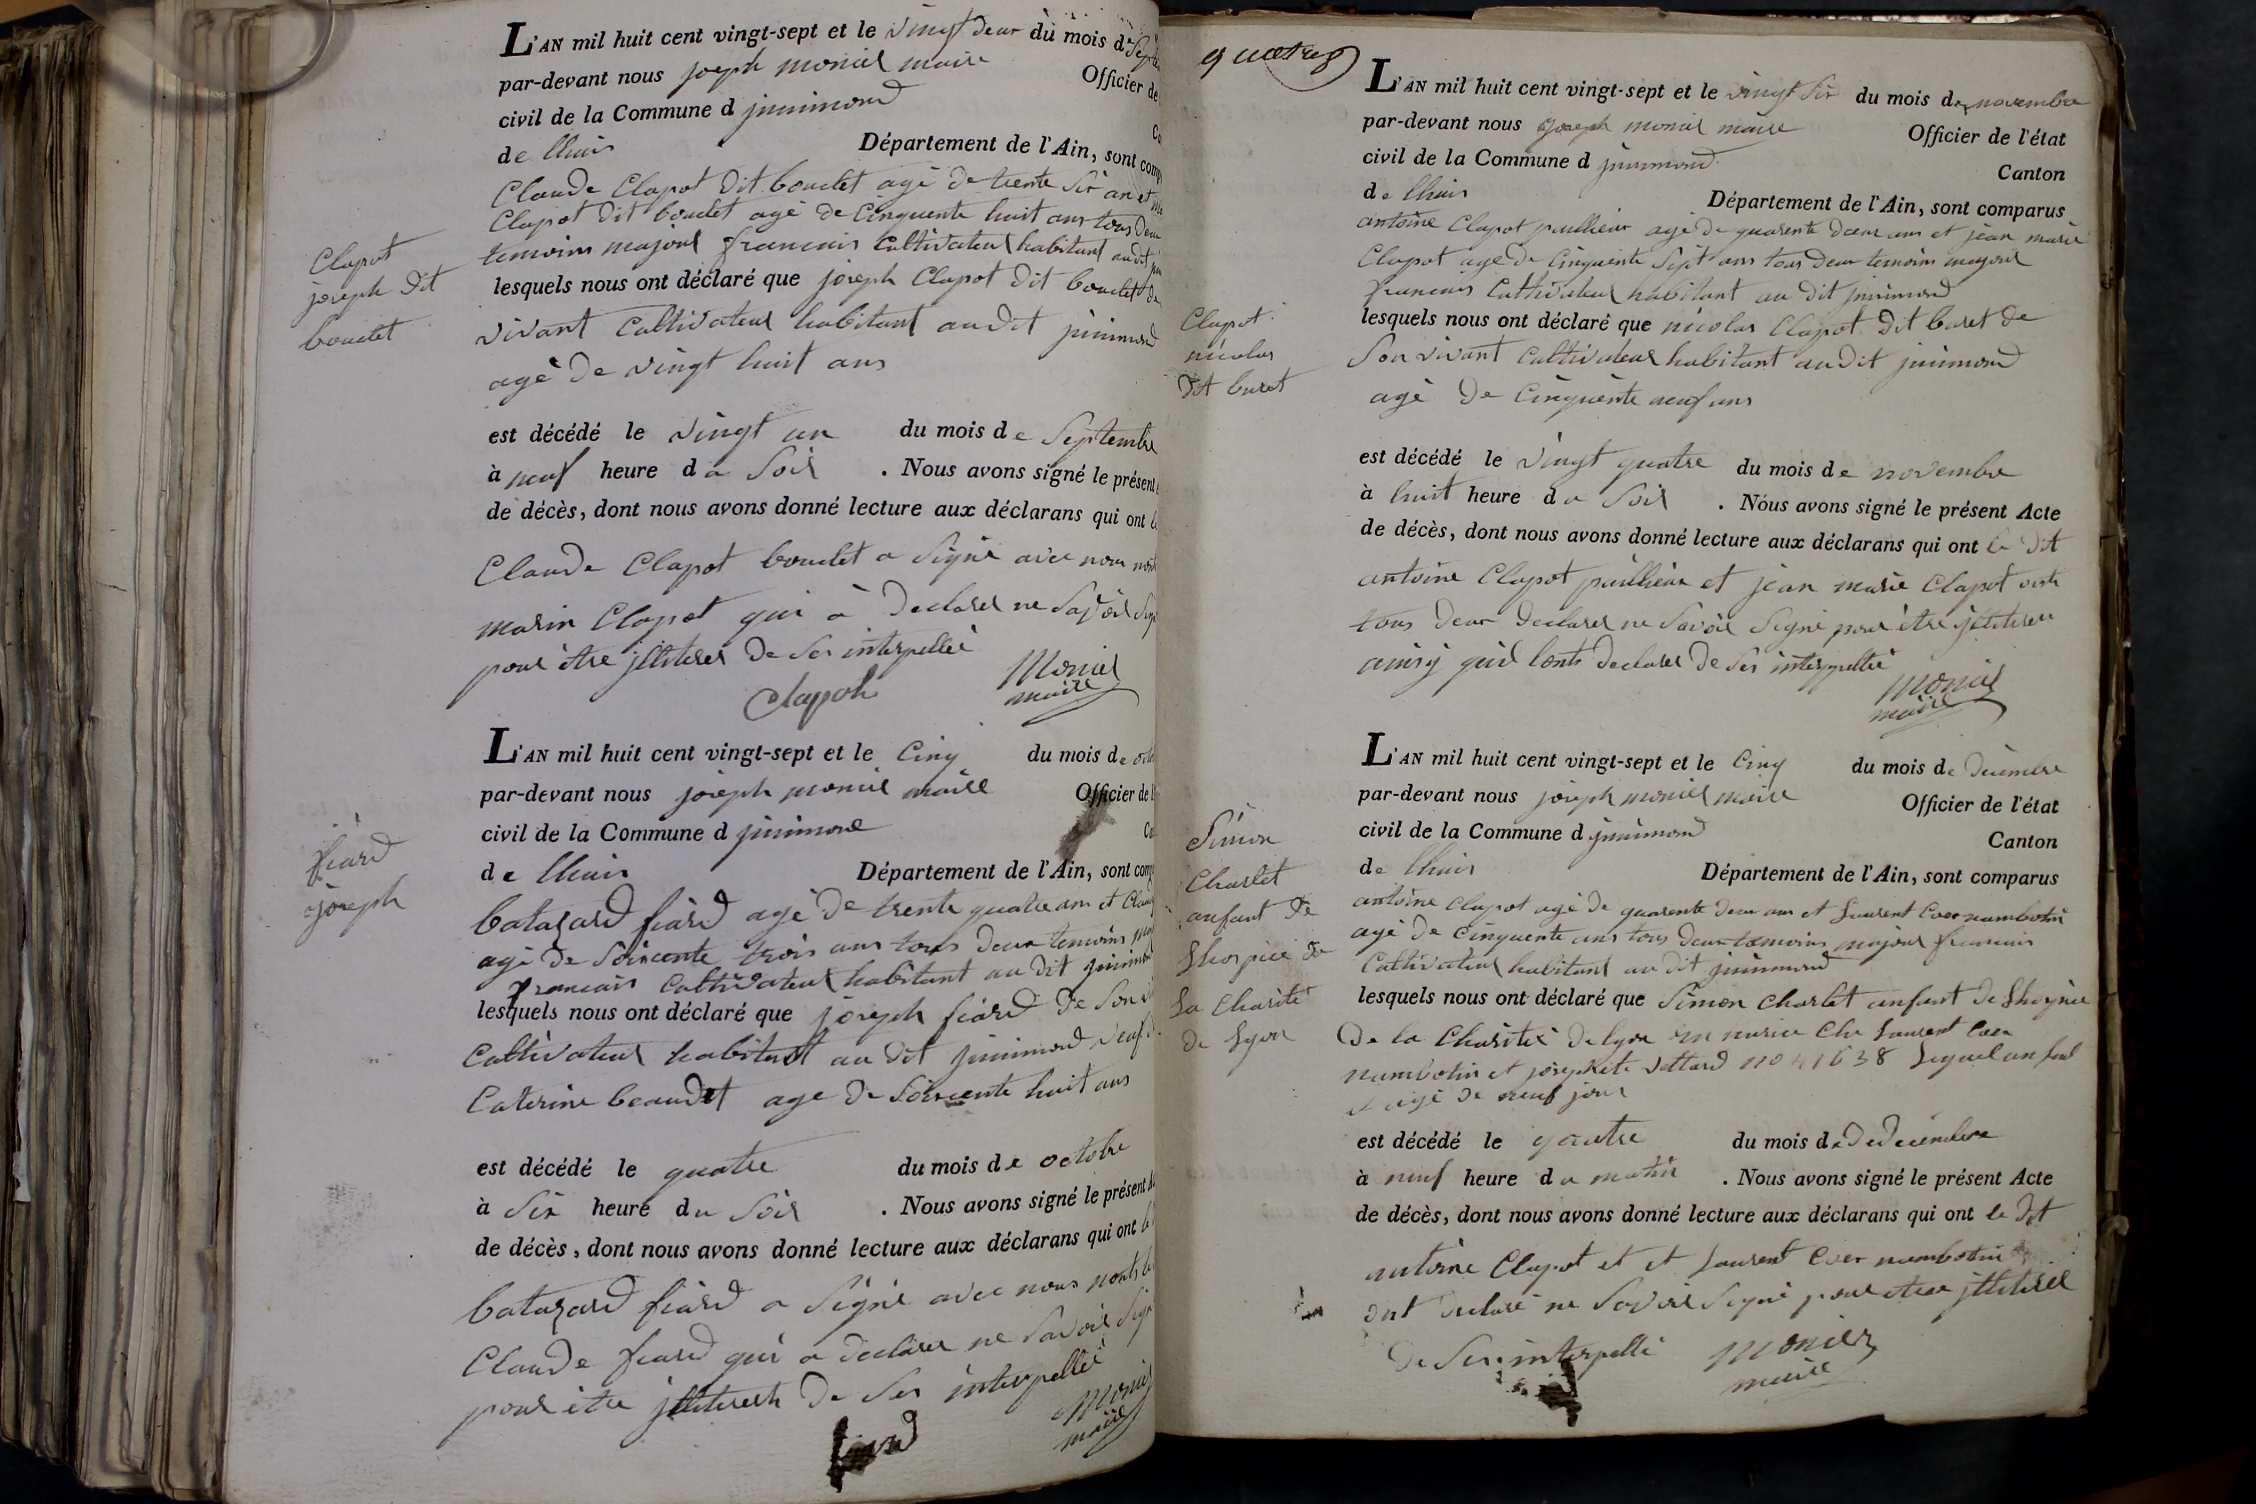 L'AN mil huit cent vingt-sept et le vingt deux du mois de
par-devant nous joseph monier maire Officier de
civil de la Commune d jninimond
de lhuis Département de l'Ain, sont
Claude Clapot dit bouclet agé de trente Six an et
Clapot dit bouclet agé de Cinquente huit ans tous deux
temoins majous francais Cultivateur habitant audit
lesquels nous ont déclaré que joseph Clapot dit bouclet
vivant Cultivateur habitant audit jninimond
agé de vingt huit ans
Clapot
joseph dit
bouclet
est décédé le vingt un du mois de Septembre
à neuf heure du Soir . Nous avons signé le présent
de décès, dont nous avons donné lecture aux déclarans qui ont
Claude Clapot bouclet a Signé avec nous
marin Clapot qui à declarer ne Savoir
pour être jlliterer de Ses interpellé
Clapot monier
maire
L'AN mil huit cent vingt-sept et le Cinq du mois de
par-devant nous joseph monier maire Officier de
civil de la Commune d jninimond
de lhuis Département de l'Ain, sont
batazard fiard agé de trente quatre ans et
agé de Soixcente trois ans tous deux temoins
francais Cultivateur habitant au dit jninimond
lesquels nous ont déclaré que joseph fiard de Son
Cultivateur habitant au dit jninimond veuf
Caterine beaudet age de Soixcente huit ans
fiard
joseph
est décédé le quatre du mois de octobre
à Six heure du Soir . Nous avons signé le présent
de décès, dont nous avons donné lecture aux déclarans qui ont
batazard fiard a Signé avec nous
Claude fiard qui a declarer ne Savoir
pour être jlliterer de Ses interpellé
fiard monier
maire
L'AN mil huit cent vingt-sept et le vingt Six du mois de novembre
par-devant nous joseph monier maire Officier de l'état
civil de la Commune d jninimond Canton
de lhuis Département de l'Ain, sont comparus
antoine Clapot paullieur agé de quarente deux ans et jean marie
Clapot age de Cinquente Sept ans tous deux temoins majous
francais Cultivateur habitant au dit jninimond
lesquels nous ont déclaré que nicolas Clapot dit buret de
Son vivant Cultivateur habitant audit jninimond
agé de Cinquente neuf ans
Clapot
nicolas
dit buret
est décédé le vingt quatre du mois de novembre
à huit heure du Soir . Nous avons signé le présent Acte
de décès, dont nous avons donné lecture aux déclarans qui ont le dit
antoine Clapot paullieur et jean marie Clapot ont
tous deux declarer ne Savoir Signé pour être jlliterer
ainsy quil lonts declarer de Ses interpellé
monier
maire
L'AN mil huit cent vingt-sept et le Cinq du mois de decembre
par-devant nous joseph monier maire Officier de l'état
civil de la Commune d jninimond Canton
de lhuis Département de l'Ain, sont comparus
antoine Clapot agé de quarente deux ans et Laurent Coer numbotin
agé de Cinquente ans tous deux temoins majous francais
Cultivateur habitant au dit jninimond
lesquels nous ont déclaré que Simon Charlet anfant de Lhospice
de la Charité de lyon en nurice Che Laurent Coer
numbotin et josephete vettard no 41638 Lequel anfant
et agé de neuf jour
Simon
Charlet
anfant de
Lhospice de
La Charité
de Lyon
est décédé le quatre du mois de Decembre
à neuf heure du matin . Nous avons signé le présent Acte
de décès, dont nous avons donné lecture aux déclarans qui ont le dit
antoine Clapot et et Laurent Coer numbotin
ont declaré ne Savoir Signé pour etre jlliterer
de Ses interpellé monier
maire